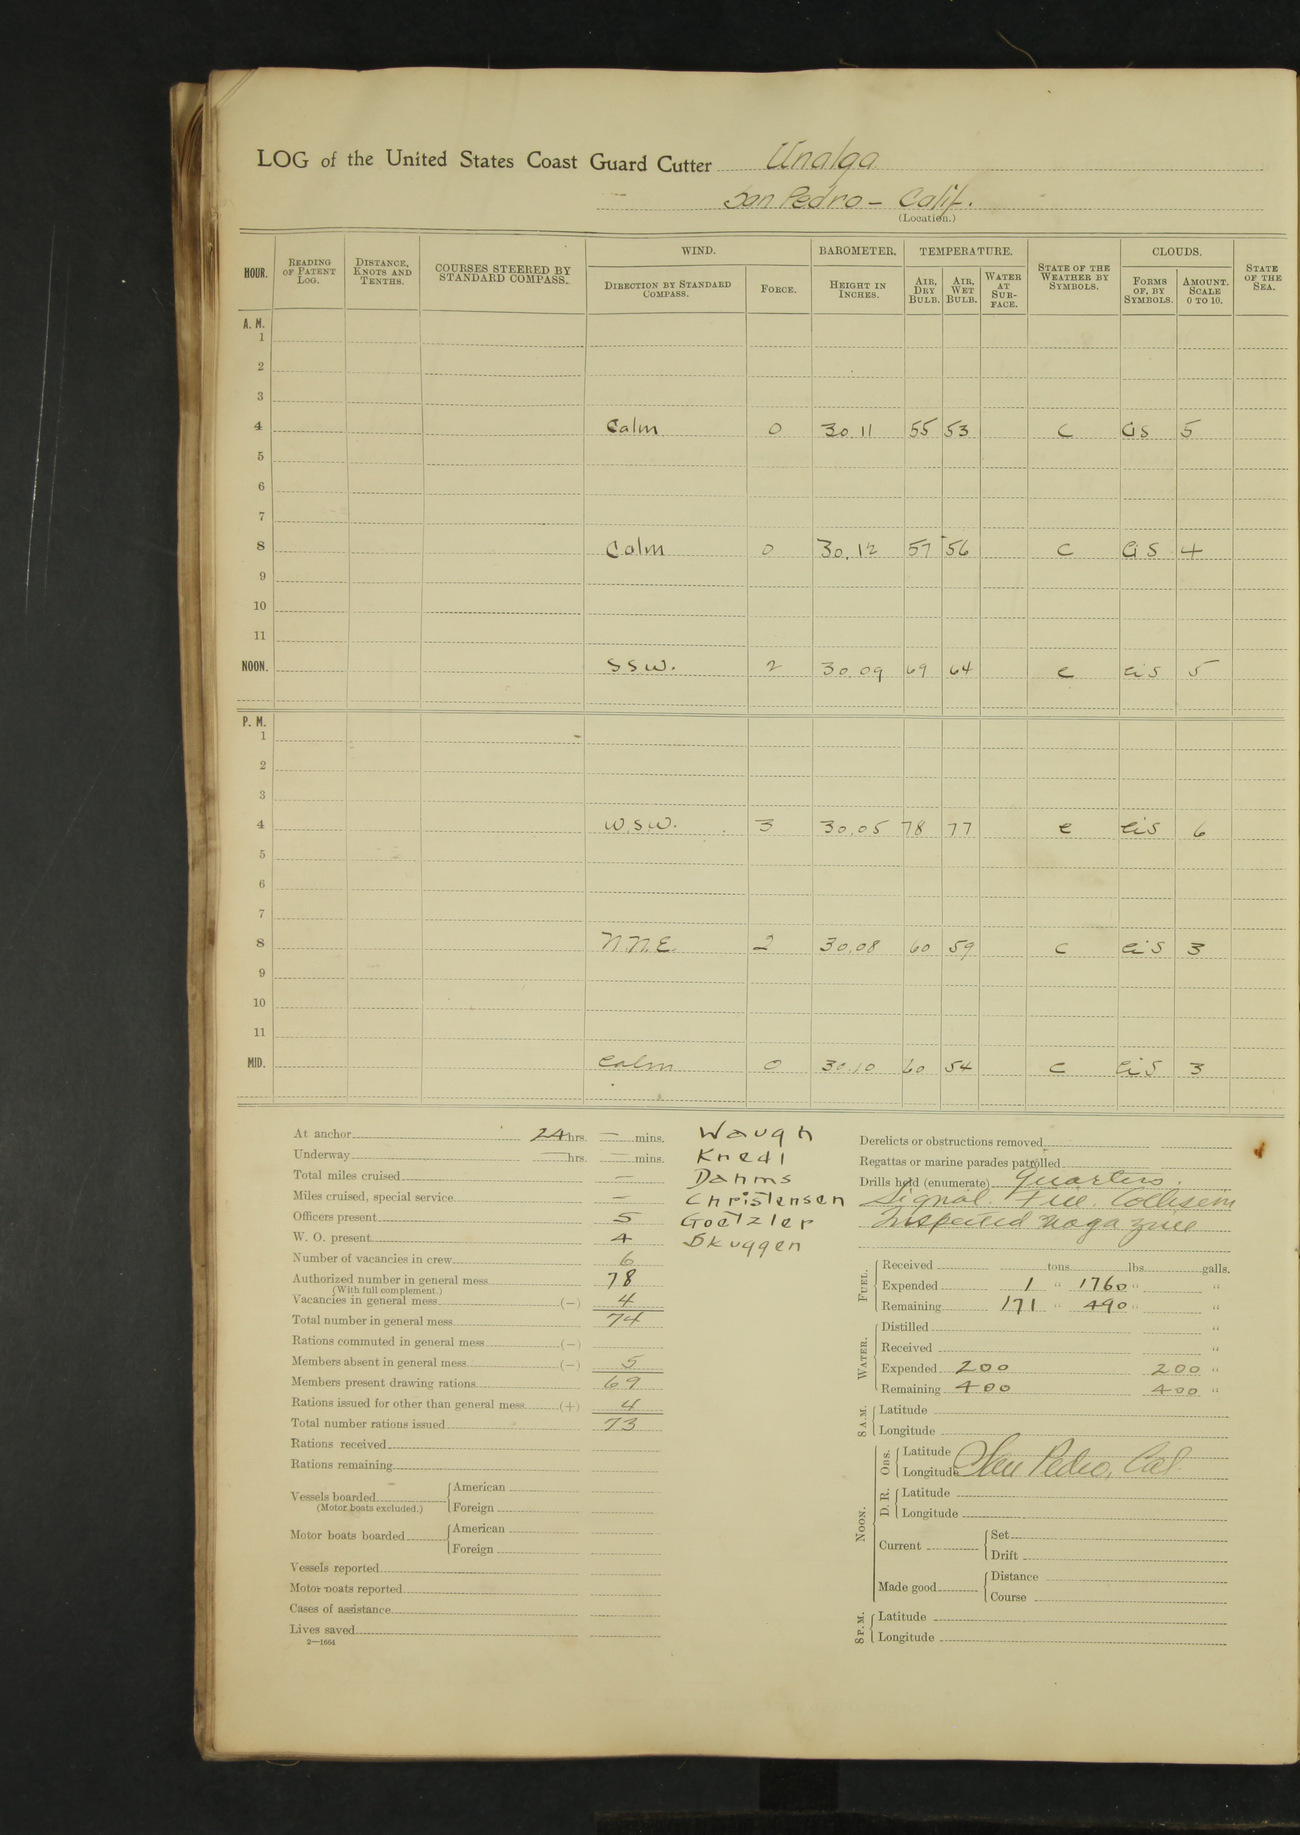 LOG of the United States Coast Guard Cutter Unalga
San Pedro - Calif.
(Location.)
HOUR.
READING OF PATENT LOG.
DISTANCE, KNOTS AND TENTHS.
COURSES STEERED BY STANDARD COMPASS.
WIND.
DIRECTION BY STANDARD COMPASS.
FORCE.
BAROMETER.
HEIGHT IN INCHES.
TEMPERATURE.
AIR, DRY BULB.
AIR, WET BULB.
WATER AT SURFACE.
STATE OF THE WEATHER BY SYMBOLS.
CLOUDS.
FORMS OF, BY SYMBOLS.
AMOUNT. SCALE 0 TO 10.
STATE OF THE SEA.
A. M.
1
2
3
4 Calm 0 30.11 55 53 C CiS 5
5
6
7
8 Calm 0 30.12 57 56 C CiS 4
9
10
11
NOON. SSW. 2 30.09 69 64 c CiS 5
P. M.
1
2
3
4 W.S.W. 3 30.05 78 77 c CiS 6
5
6
7
8 N.N.E. 2 30.08 60 59 c CiS 3
9
10
11
MID. Calm 0 30.10 60 54 c CiS 3
At anchor 24 hrs. — mins.
Underway — hrs. — mins.
Total miles cruised —
Miles cruised, special service —
Officers present 5
W. O. present 4
Number of vacancies in crew 6
Authorized number in general mess 78
(With full complement.)
Vacancies in general mess (—) 4
Total number in general mess 74
Rations commuted in general mess (—)
Members absent in general mess (—) 5
Members present drawing rations 69
Rations issued for other than general mess (+) 4
Total number rations issued 73
Rations received
Rations remaining
Vessels boarded American
(Motor boats excluded.) Foreign
Motor boats boarded American
Foreign
Vessels reported
Motor boats reported
Cases of assistance
Lives saved
2—1664
Waugh
Knedl
Dahms
Christensen
Goetzler
Skuggen
Derelicts or obstructions removed
Regattas or marine parades patrolled
Drills held (enumerate) Quarters.
Signal. Fire. Collision
Inspected magazine
FUEL.
Received tons lbs. galls.
Expended 1 " 1760 " "
Remaining 171 " 490 " "
WATER.
Distilled "
Received "
Expended 200 200 "
Remaining 400 400 "
8 A.M.
Latitude
Longitude
NOON.
OBS.
Latitude
Longitude San Pedro, Cal.
D. R.
Latitude
Longitude
Current Set
Drift
Made good Distance
Course
8 P.M.
Latitude
Longitude